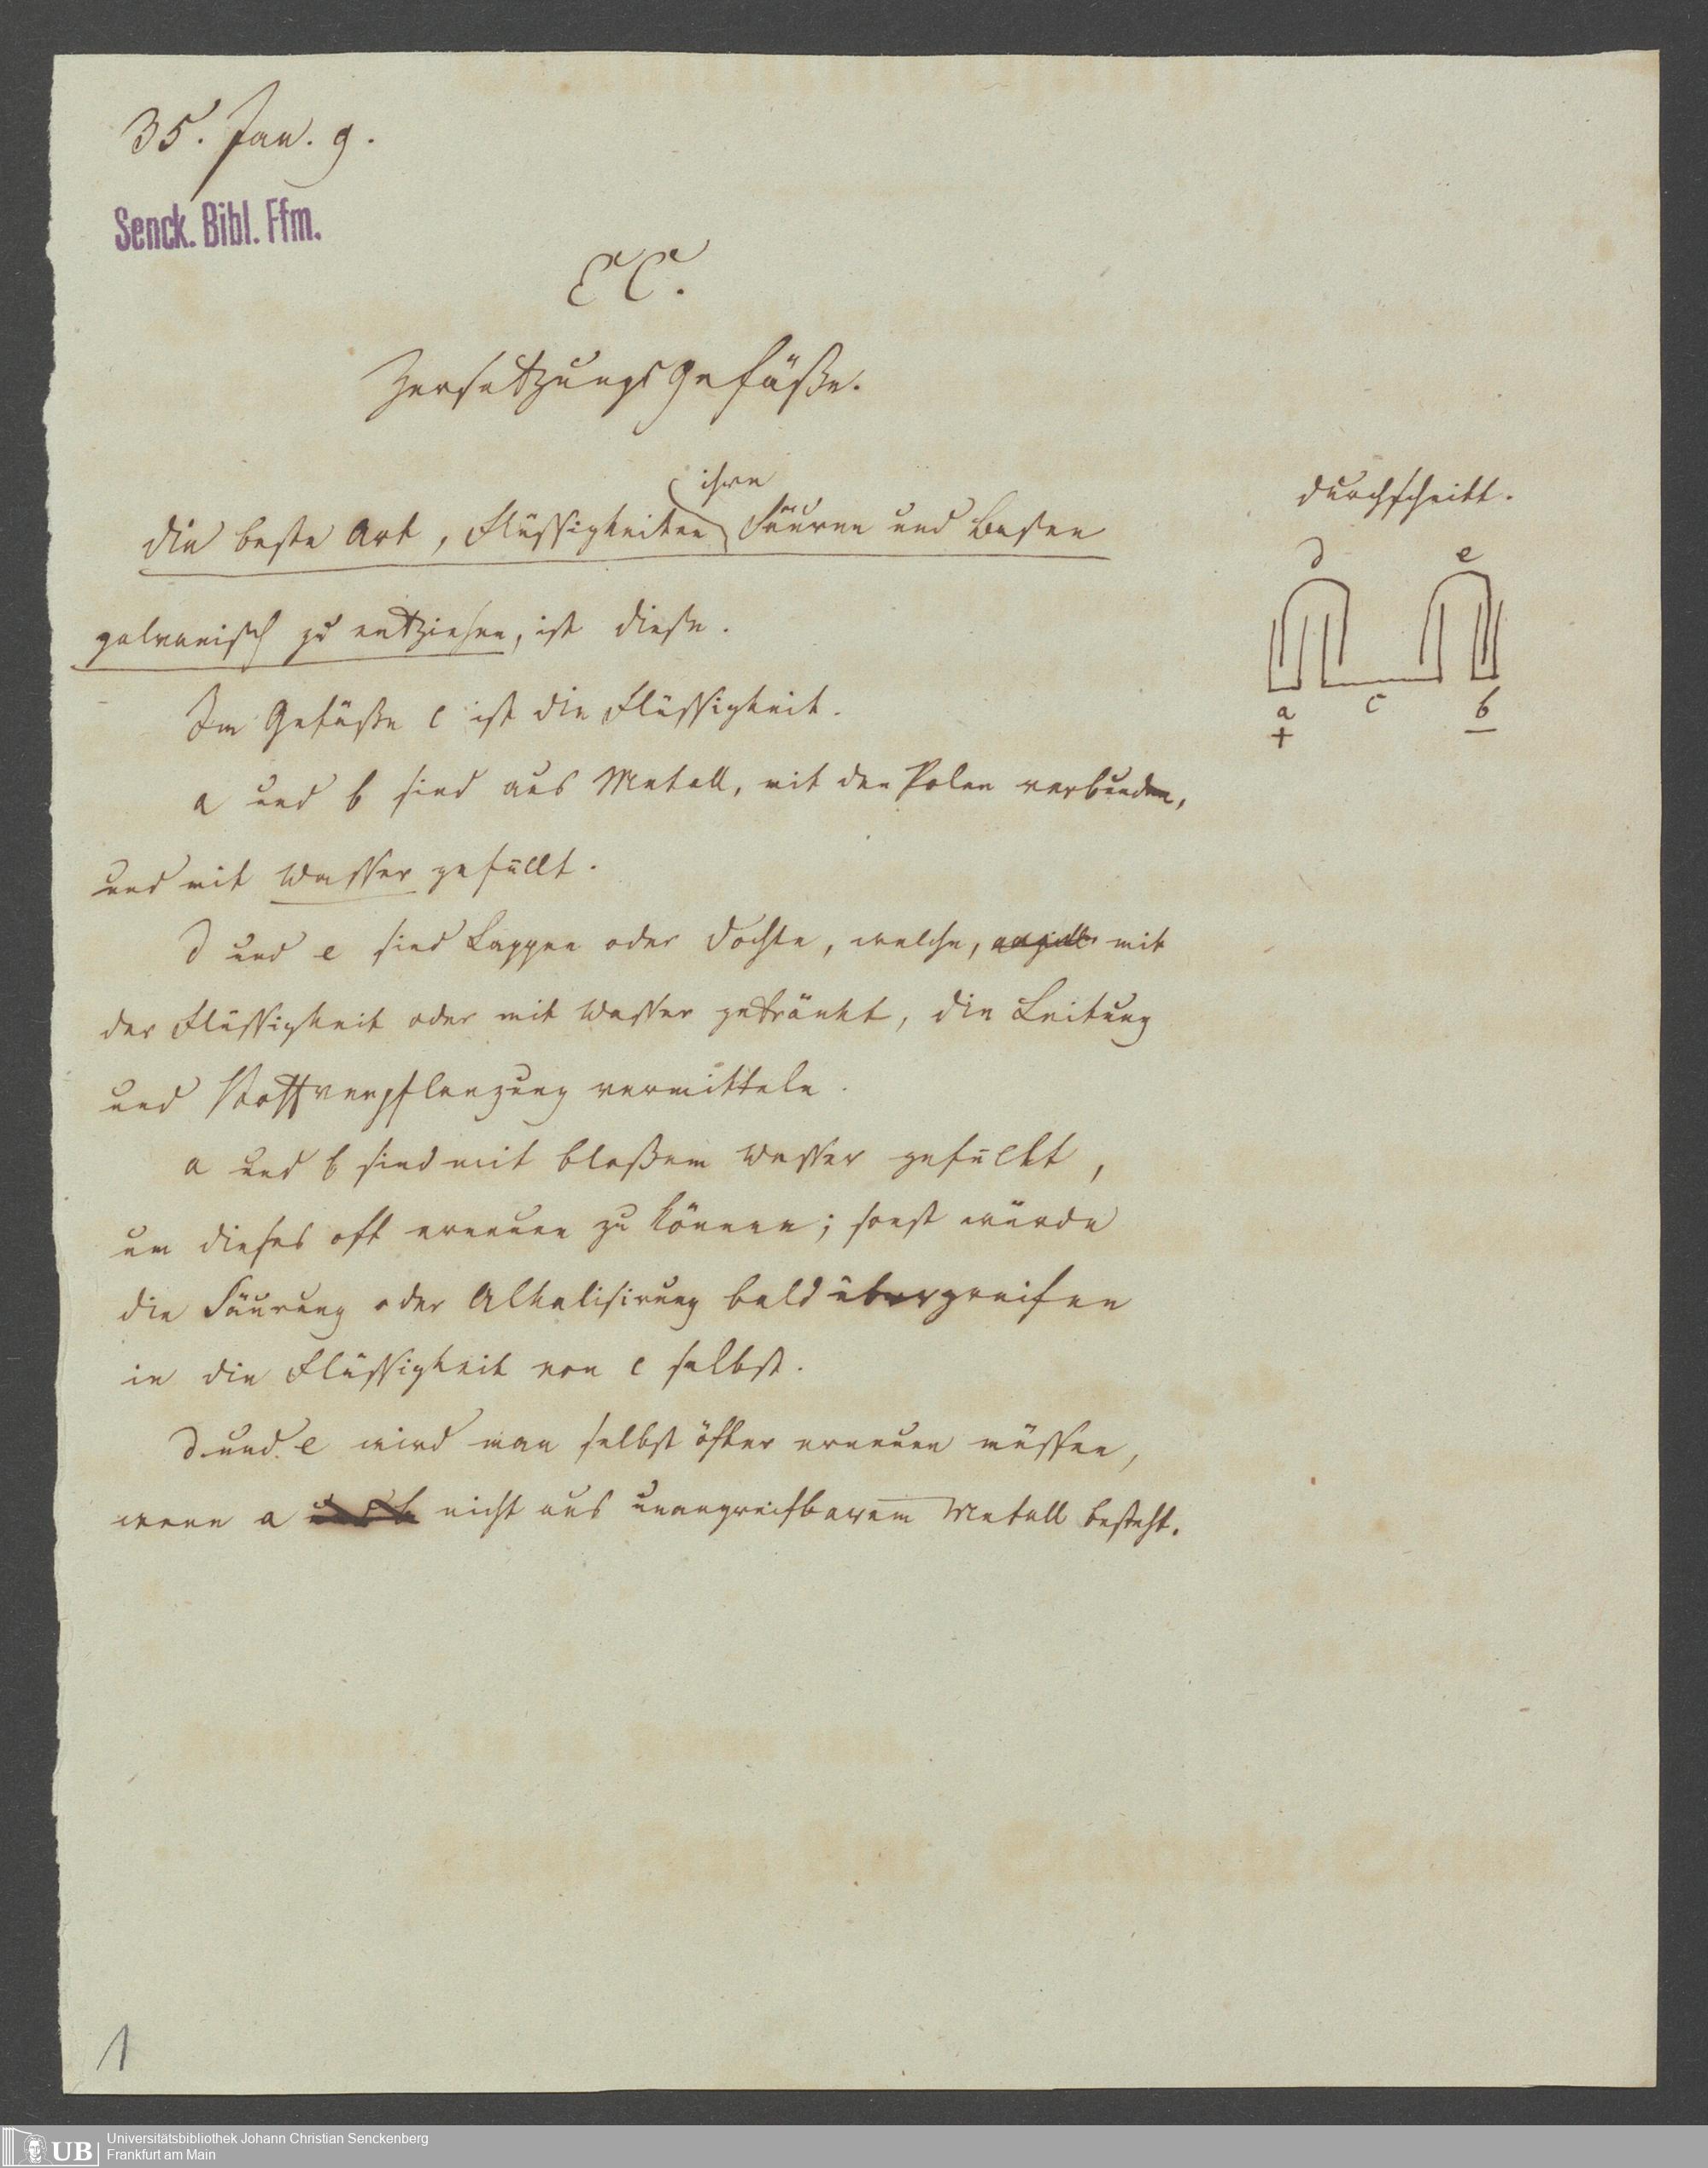 35. Jan. 9.
Senck. Bibl. Ffm.
EC.
ZersetzungsGefäße.
ihre
die beste Art, Flüssigkeiten Säuren und Basen
galvanisch zu entziehen, ist diese.
Im Gefäße c ist die Flüssigkeit.
a und b sind aus Metall, mit den Polen verbunden,
und mit Wasser gefüllt.
d und e sind Lappen oder Dochte, welche, mit
der Flüssigkeit oder mit Wasser getränkt, die Leitung
und Stoffverpflanzung vermitteln.
a und b sind mit bloßem Wasser gefüllt,
um dieses oft erneuen zu können; sonst würde
die Säurung oder Alkalisirung bald übergreifen
in die Flüssigkeit von c selbst.
d und e wird man selbst öfter erneuen müssen,
wenn a nicht aus unangreifbarem Metall besteht.
Durchschnitt.
d e
a c b
+ –
1
UB
Universitätsbibliothek Johann Christian Senckenberg
Frankfurt am Main